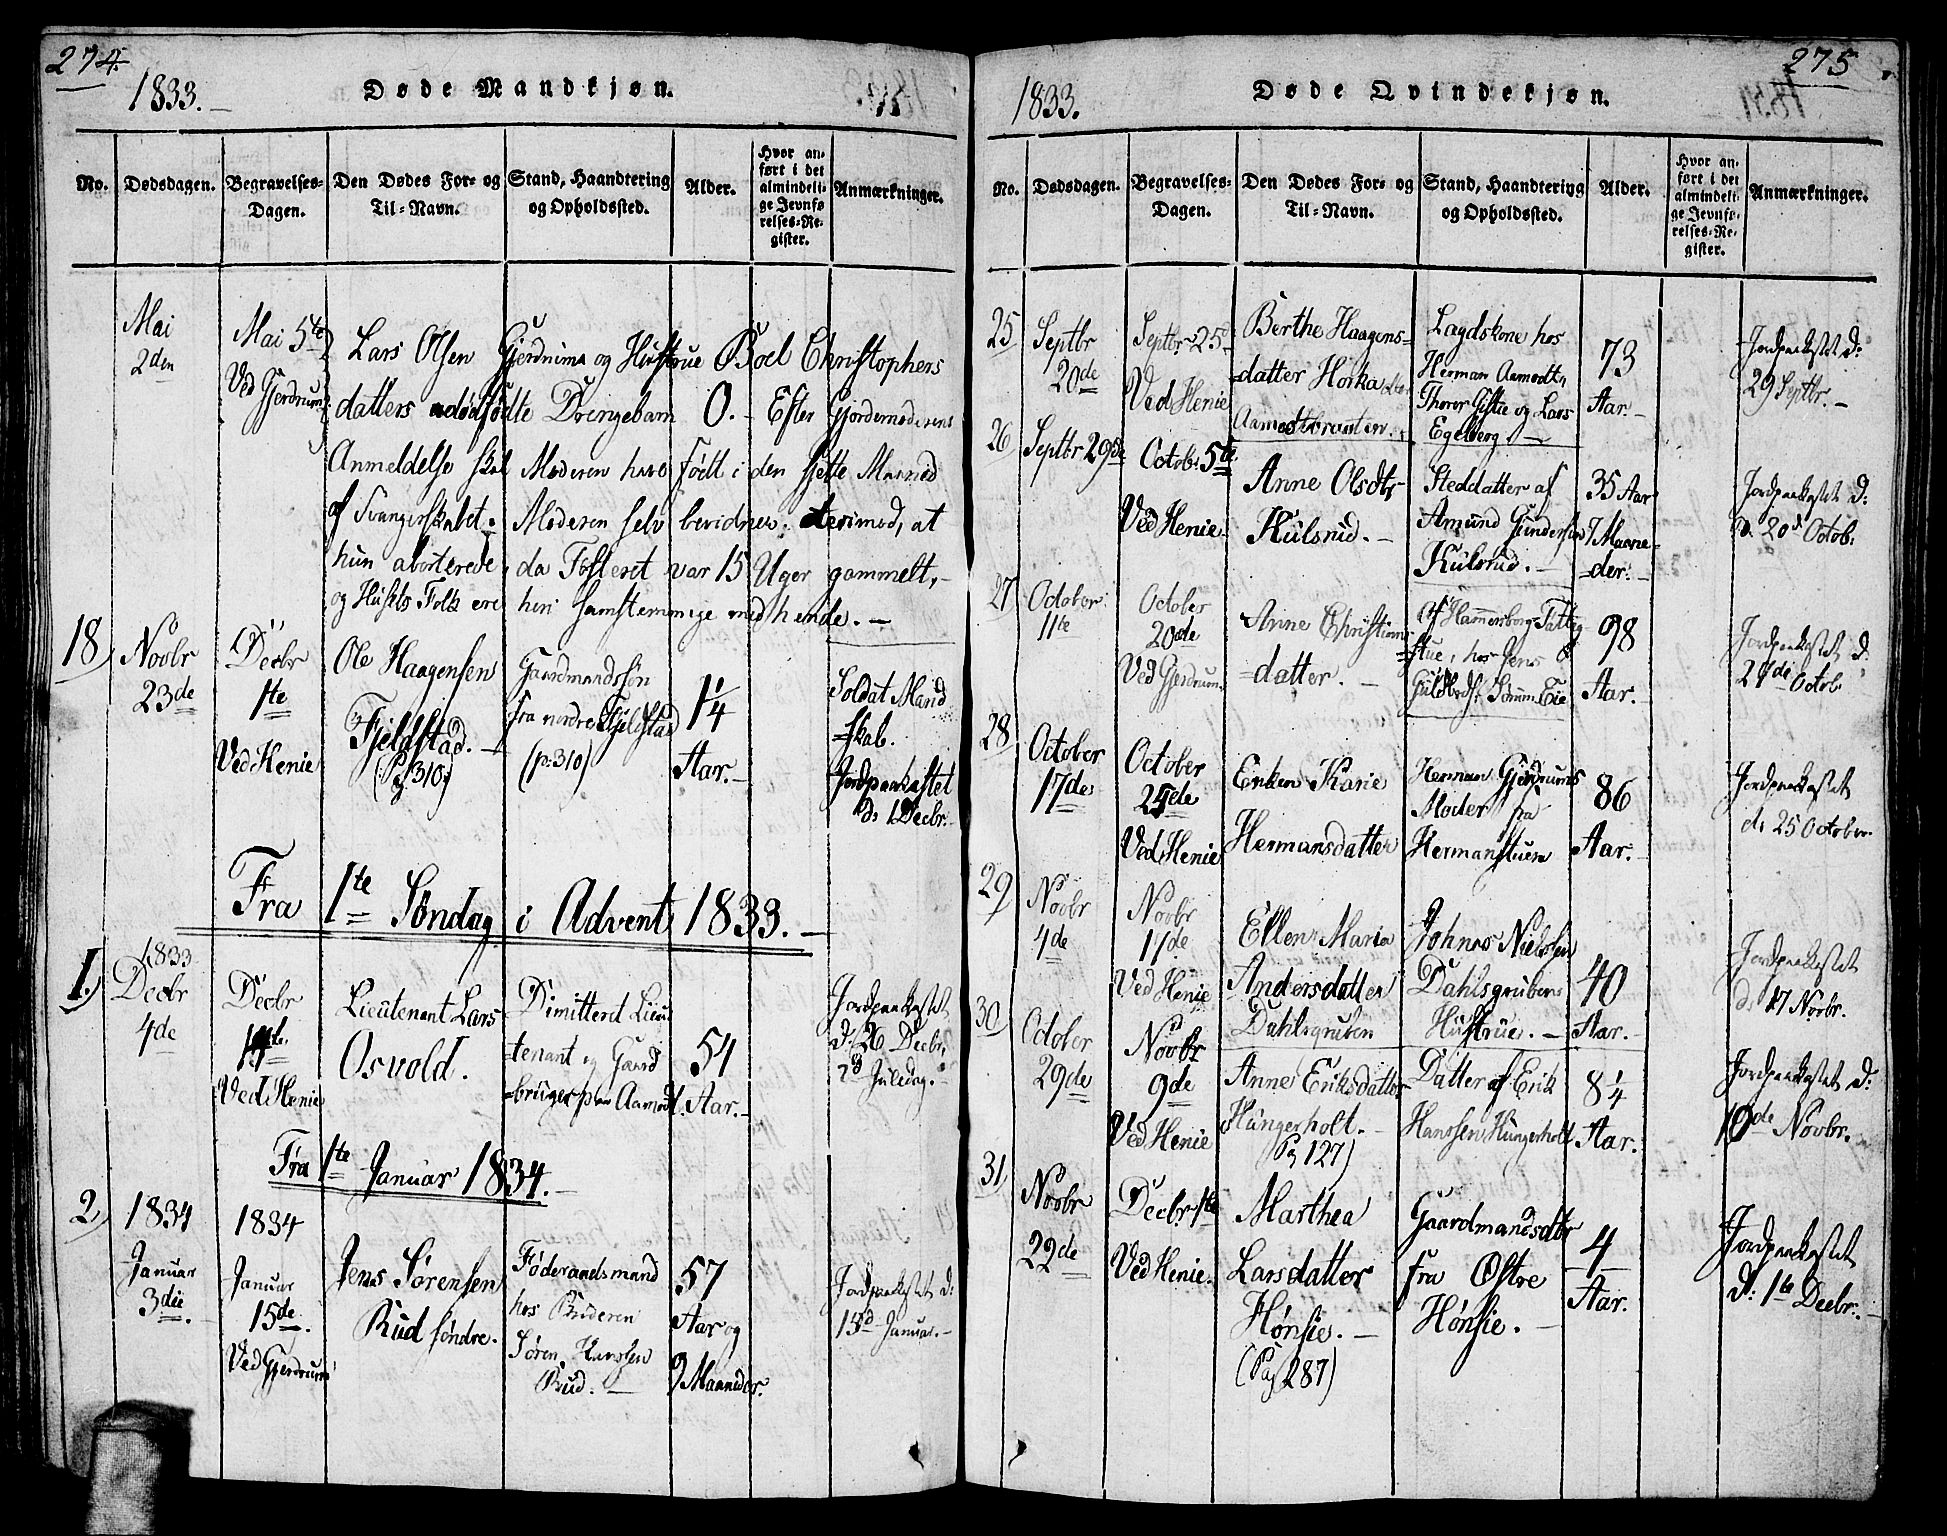 274.
1833.
Døde Mandkjøn.
No.
Dødsdagen.
Begravelses-
Dagen.
Den Dødes For- og
Til-Navn.
Stand, Haandtering
og Opholdssted.
Alder.
Hvor an-
ført i det
almindeli-
ge Jevnfø-
relses-Re-
gister.
Anmærkninger.
Mai
2den
Mai 5te
Ved Gjerdrum
Lars Olsen Gjerdnims og Hustrue Boel Christophers
datters dødfødte Drengebarn 0. - Efter Gjordemoderens
Anmeldelse skal Moderen have født i den sjette Maaned
af Svangerskabet. Moderen selv bevidner derimod, at
hun aborterede, da Fosteret var 15 Uger gammelt,
og Husets Folk ere heri samstemmige med hende. -
18
Novbr
23de
Decbr
1te
Ved Henie
Ole Haagensen
Fjeldstad. -
(Pg 310)
Gaardmandssøn
fra nordre Fjeldstad
(p: 310)
1 1/4
Aar. -
Soldat Mand
=skab.
Jordpaakastet
d. 1 Decbr.
Fra 1te Søndag i Advent 1833. -
1.)
1833
Decbr
4de
Decbr
Ved Henie
Lieutenant Lars
Osvold.
Dimitterd Lieu
tenant og Gaard
=bruger paa Aamodt.
54
Aar. -
Jordpaakastet
d. 26 Decbr,
2d Juledag. -
Fra 1te Januar 1834. -
2.)
1834
Januar
3die.
1834
Januar
15de.
Ved Gjerdrum
Jens Sørensen
Rud søndre.
Føderaadsmand
hos Ruderen
Søren
Rud. -
57
Aar og
9 Maaneder.
Jordpaakastet d:
15d Januar. -
275
1833.
Døde Qvindekjøn.
No.
Dødsdagen.
Begravelses-
Dagen.
Den Dødes For- og
Til-Navn.
Stand, Haandtering
og Opholdssted.
Alder.
Hvor an-
ført i det
almindeli-
ge Jevnfø-
relses-Re-
gister.
Anmærkninger.
25
Septbr
20de
Septbr 25
Ved Henie
Berthe Haagens=
=datter Horka
Lagdskone hos
Herman Aamodt,
Thorer Gistie og Lars
Egeberg. -
73
Aar. -
Jordpaakastet d:
29 Septbr. -
26
Septbr 29de
Octob: 5te
Ved Henie.
Anne Olsdtr
Kulsrud. -
Steddatter af
Amund Gundersen
Kulsrud. -
35 Aar
7 Maane-
=der. -
Jordpaakastet d:
20d Octob:
27
October
11te
October
20de
Ved Gjerdrum
Anne Christians
=datter. -
Af Hammersborg Fattig
=stue, hos Jens
98
Aar. -
Jordpaakastet d:
Octob
28
October
17de
October
25de
Ved Henie
Enken Karie
Hermansdatter
Herman Gjerdrums
Moder fra
Hermanstuen
86
Aar. -
Jordpaakastet
d. 25 October.
29
Novbr
4de
Novbr
17de
Ved Henie
Ellen Maria
Andersdatter
Dahlsgruben
Johnes Nielssen
Dahlsgrubens
Hustrue. -
40
Aar. -
Jordpaakastet
d. 17 Novbr.
30
October
29de
Novbr
9de
Ved Henie
Anne Eriksdatter
Hungerholt. -
(Pg 127)
Datter af Erik
Hanssen Hungerholt
8 1/4
Aar.
Jordpaakastet d:
10de Novbr.
31
Novbr
22de
Decbr 1te
Ved Henie.
Marthea
Larsdatter
Hønsie. -
(Pag 287)
Gaardmandsdtr
fra Østre
Hønsie. -
4
Aar.
Jordpaakastet
d: 1te Decbr. -